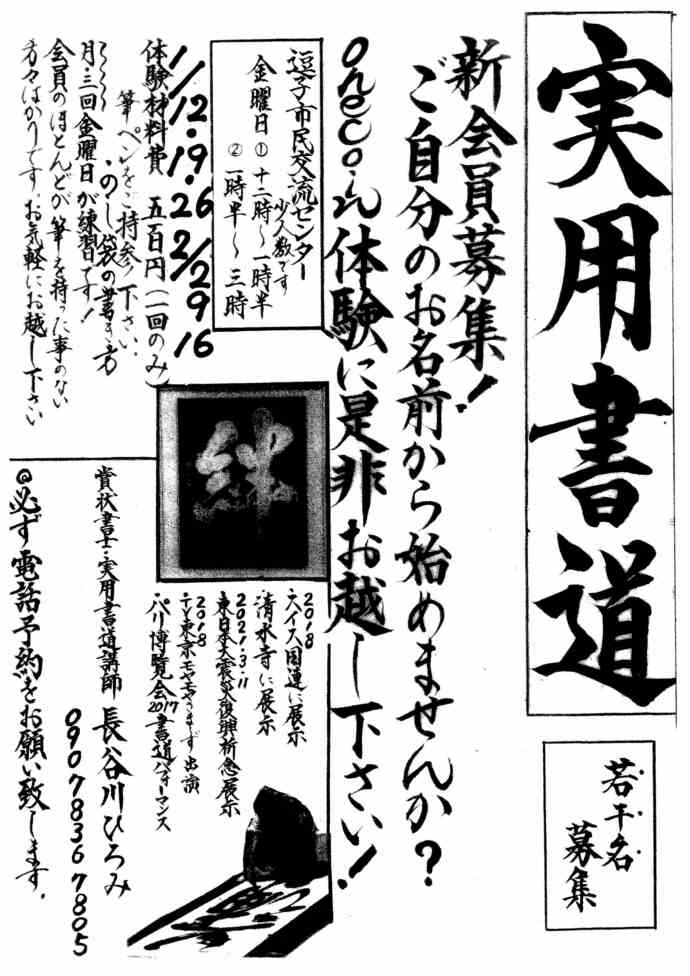 実用書道
若干名
募集
新会員募集!
ご自分のお名前から始めませんか?
oneco.in体験に是非お越し下さい!
逗子市民交流センター
少人数です
金曜日① 十二時~一時半
② 一時半~三時
1/12・19・26 2/2 9 16
体験材料費 五百円(一回のみ)
筆ペンをご持参下さい.
・のし袋の書き方
月・三回金曜日が練習です!
会員のほとんどが筆を持った事のない
方々ばかりです.お気軽にお越し下さい
絆
2018
スイス国連に展示
清水寺に展示
2021.3.11
東日本大震災復興祈念展示
2018
テレ東京モヤモヤさまーず出演
・パリ博覧会2017書道パフォーマンス
賞状書士・実用書道講師 長谷川ひろみ
090 7836 7805
◎必ず電話予約をお願い致します.